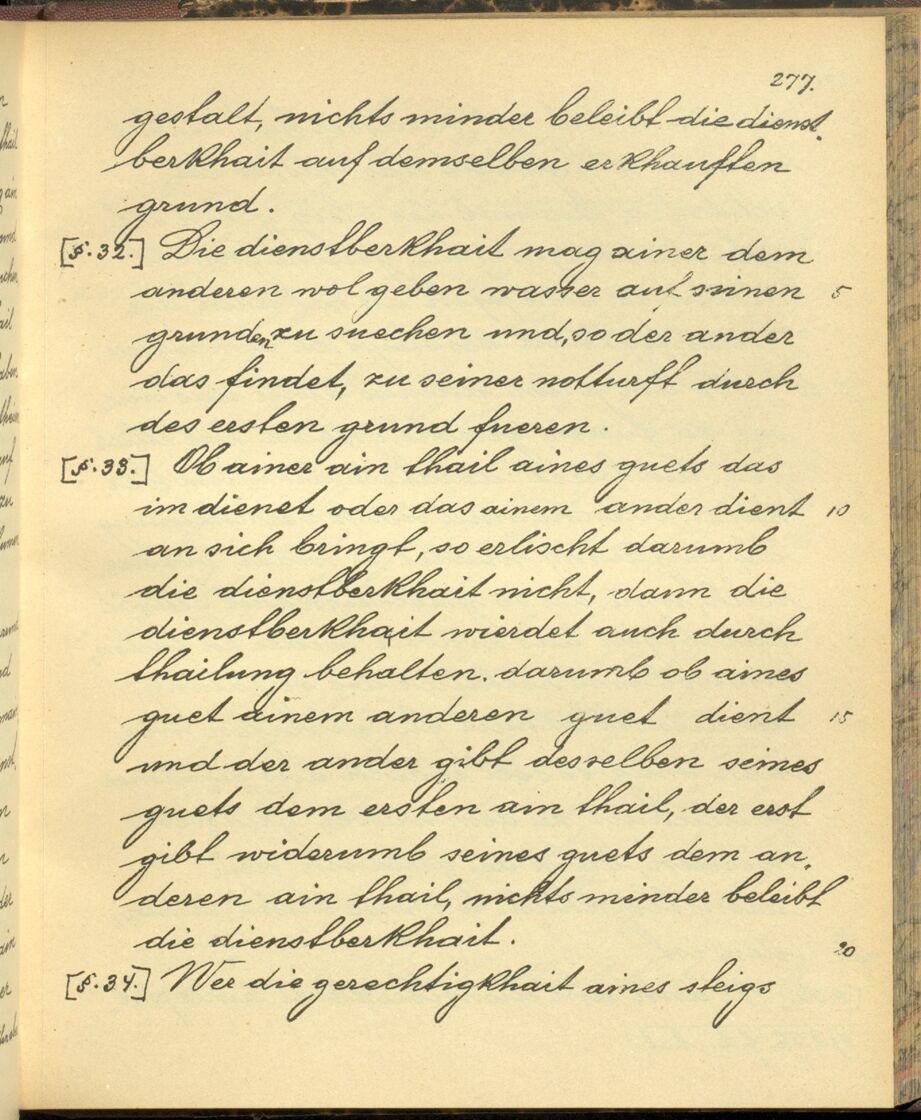 277.
gestalt, nichts minder beleibt die dienst-
berkhait auf demselben erkhauften
grund.
[§. 32.] Die dienstberkhait mag ainer dem
anderen wol geben wasser auf seinen 5
grunden zu suechen und, so der ander
das findet, zu seiner notturft durch
des ersten grund fueren.
[§. 33.] Ob ainer ain thail aines guets das
im dienet oder das ainem ander dient 10
an sich bringt, so erlischt darumb
die dienstberkhait nicht, dann die
dienstberkhait wierdet auch durch
thailung behalten. darumb ob aines
guet ainem anderen guet dient 15
und der ander gibt desselben seines
guets dem ersten ain thail, der erst
gibt widerumb seines guets dem an-
deren ain thail, nichts minder beleibt
die dienstberkhait. 20
[§. 34.] Wer die gerechtigkhait aines steigs